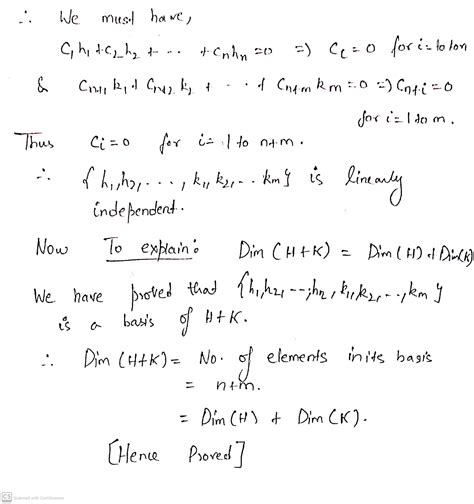 ∴ We must have,
C₁h₁ + C₂h₂ + ·· + Cnhn = 0 ⇒ Ci = 0 for i = 1 to n
& Cn+1 k₁ + Cn+2 k₂ + ·· + Cn+m km = 0 ⇒ Cn+i = 0
for i = 1 to m.
Thus Ci = 0 for i = 1 to n+m.
∴ {h₁, h₂, . . . , k₁, k₂, .. km} is linearly
independent.
Now To explain: Dim (H+K) = Dim (H) + Dim(K)
We have proved that {h₁, h₂, --, hn, k₁, k₂, .., km}
is a basis of H+K.
∴ Dim (H+K) = No. of elements in its basis
= n+m.
= Dim (H) + Dim (K).
[Hence Proved]
CS Scanned with CamScanner